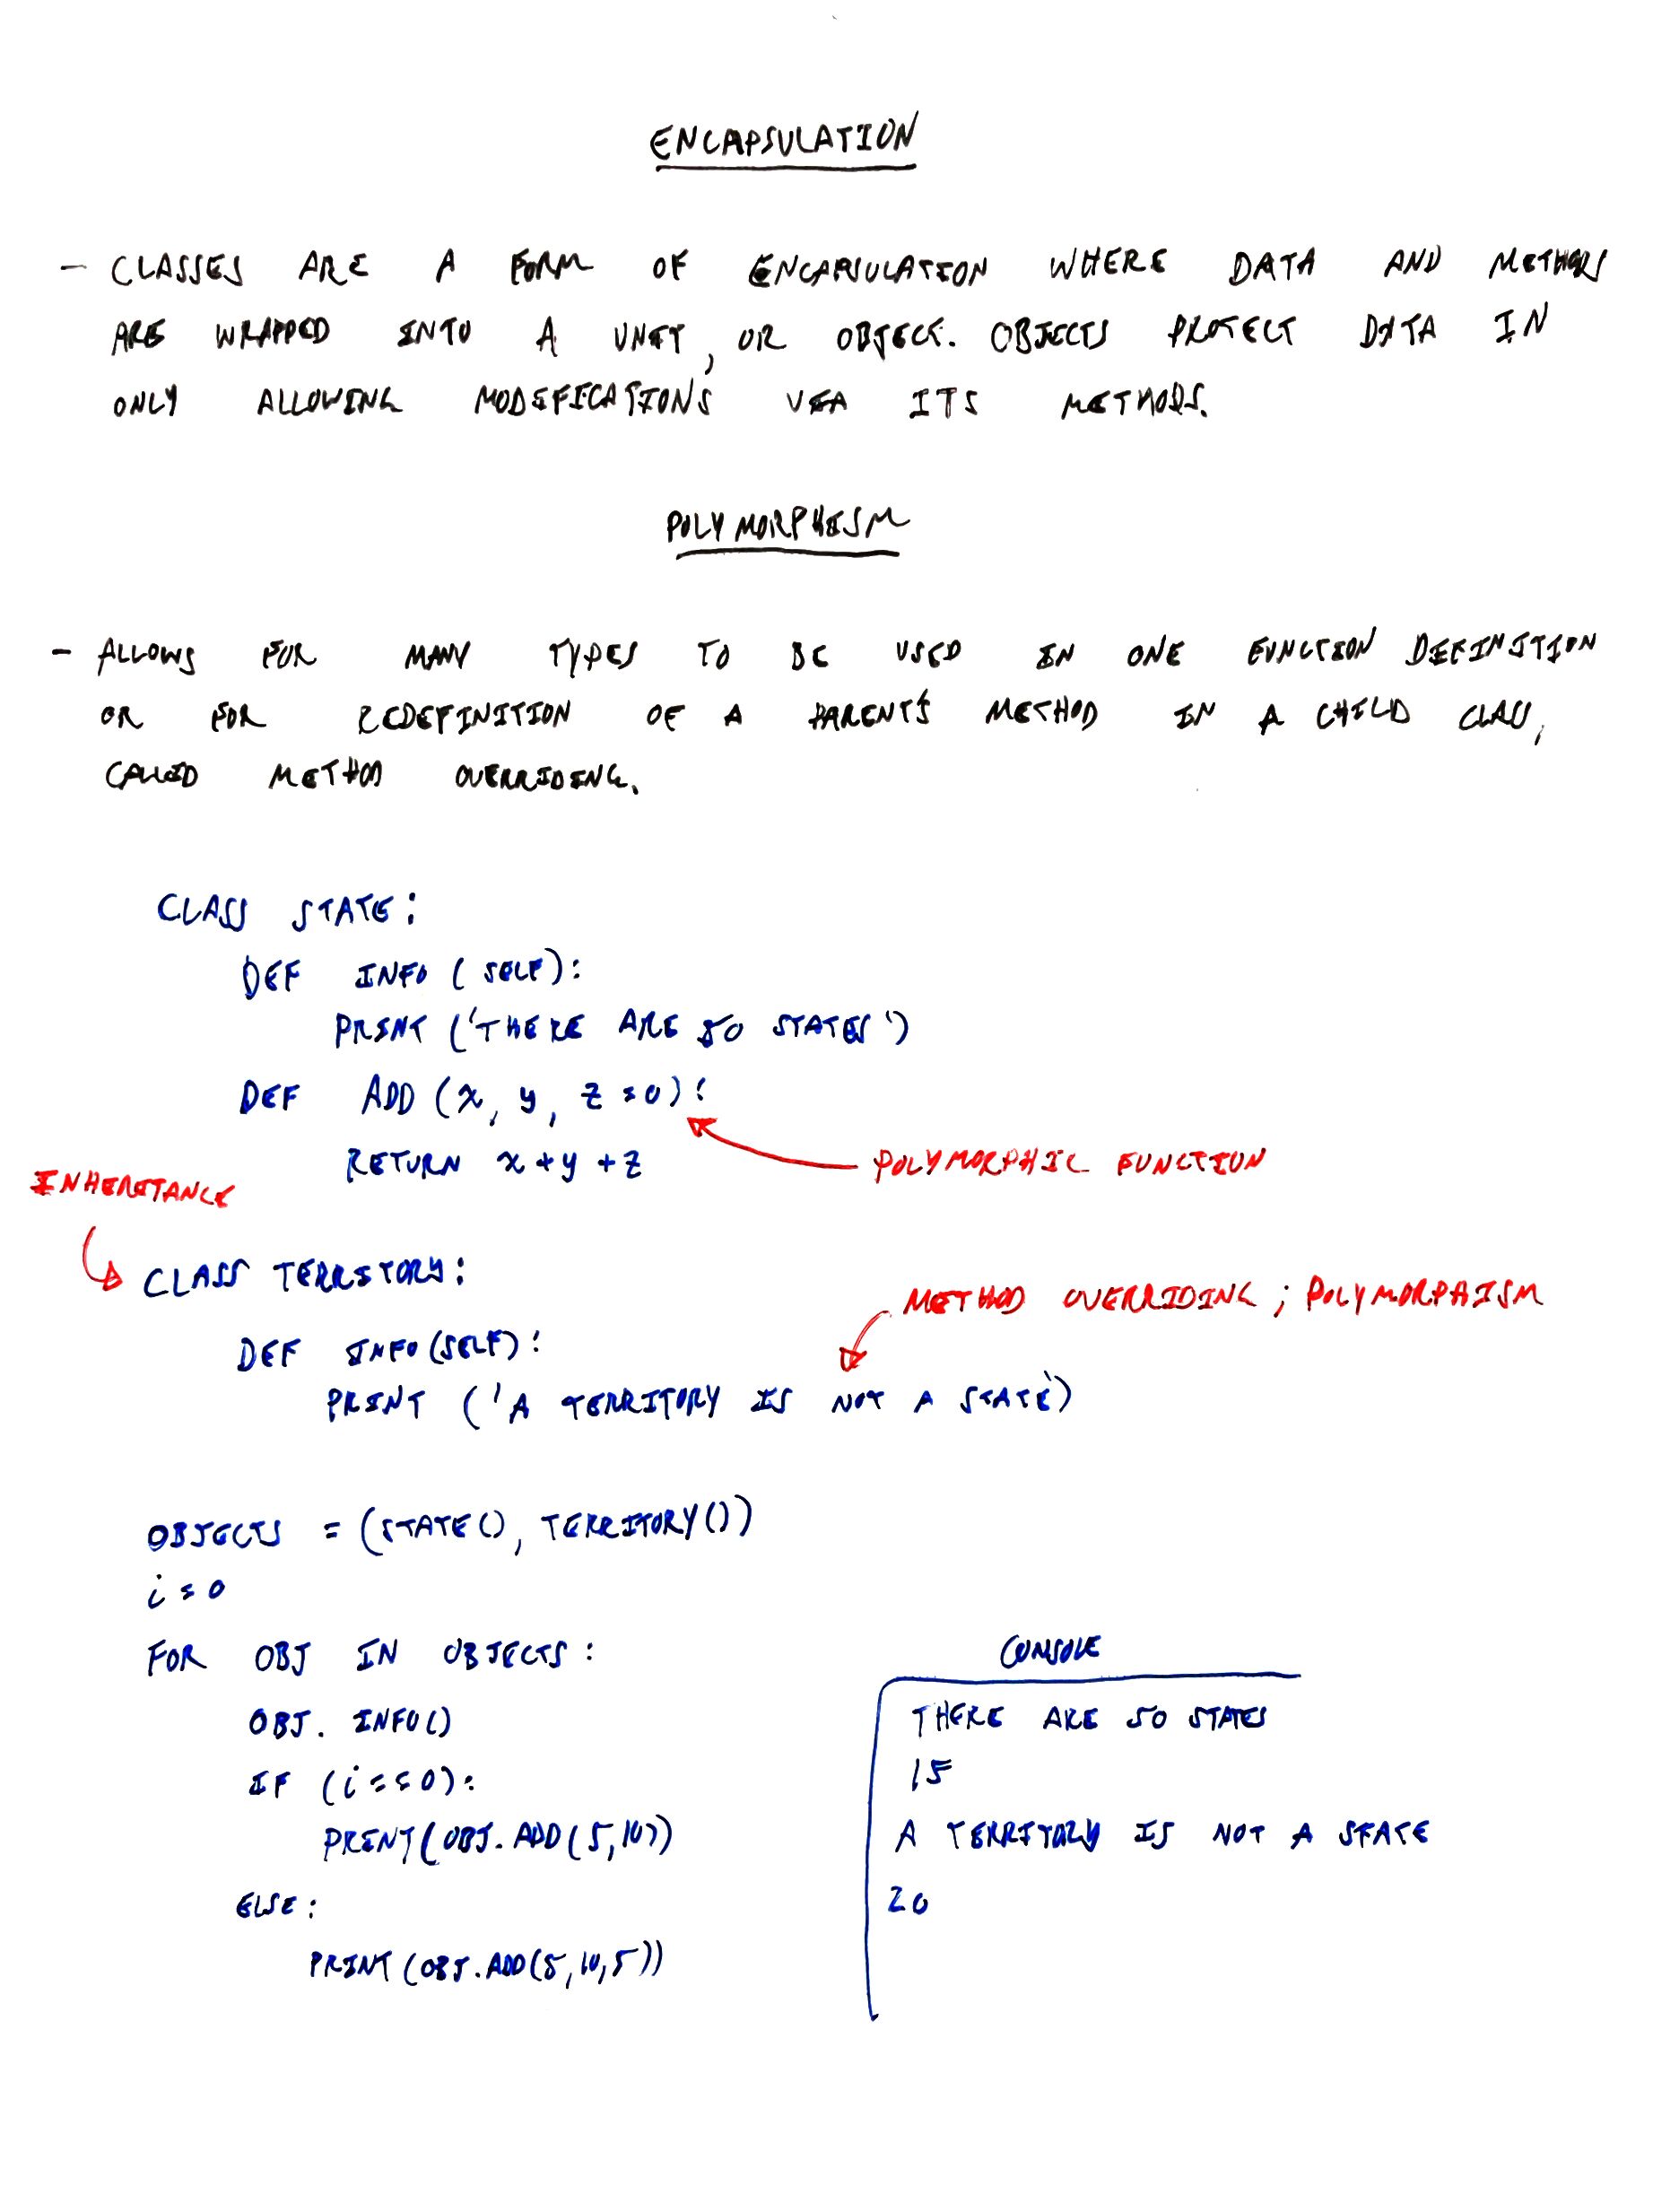 ENCAPSULATION
- CLASSES ARE A FORM OF ENCAPSULATION WHERE DATA AND METHODS
ARE WRAPPED INTO A UNIT, OR OBJECT. OBJECTS PROTECT DATA IN
ONLY ALLOWING MODIFICATIONS VIA ITS METHODS.
POLYMORPHISM
- ALLOWS FOR MANY TYPES TO BE USED IN ONE FUNCTION DEFINITION
OR FOR REDEFINITION OF A PARENT'S METHOD IN A CHILD CLASS,
CALLED METHOD OVERRIDING.
CLASS STATE:
DEF INFO (SELF):
PRINT ('THERE ARE 50 STATES')
DEF ADD (x, y, z=0):
RETURN x+y+z
POLYMORPHIC FUNCTION
INHERITANCE
CLASS TERRITORY:
METHOD OVERRIDING; POLYMORPHISM
DEF INFO(SELF):
PRINT ('A TERRITORY IS NOT A STATE')
OBJECTS = (STATE(), TERRITORY())
i=0
FOR OBJ IN OBJECTS:
OBJ. INFO()
IF (i==0):
PRINT(OBJ.ADD(5,10))
ELSE:
PRINT(OBJ.ADD(5,10,5))
CONSOLE
THERE ARE 50 STATES
15
A TERRITORY IS NOT A STATE
20